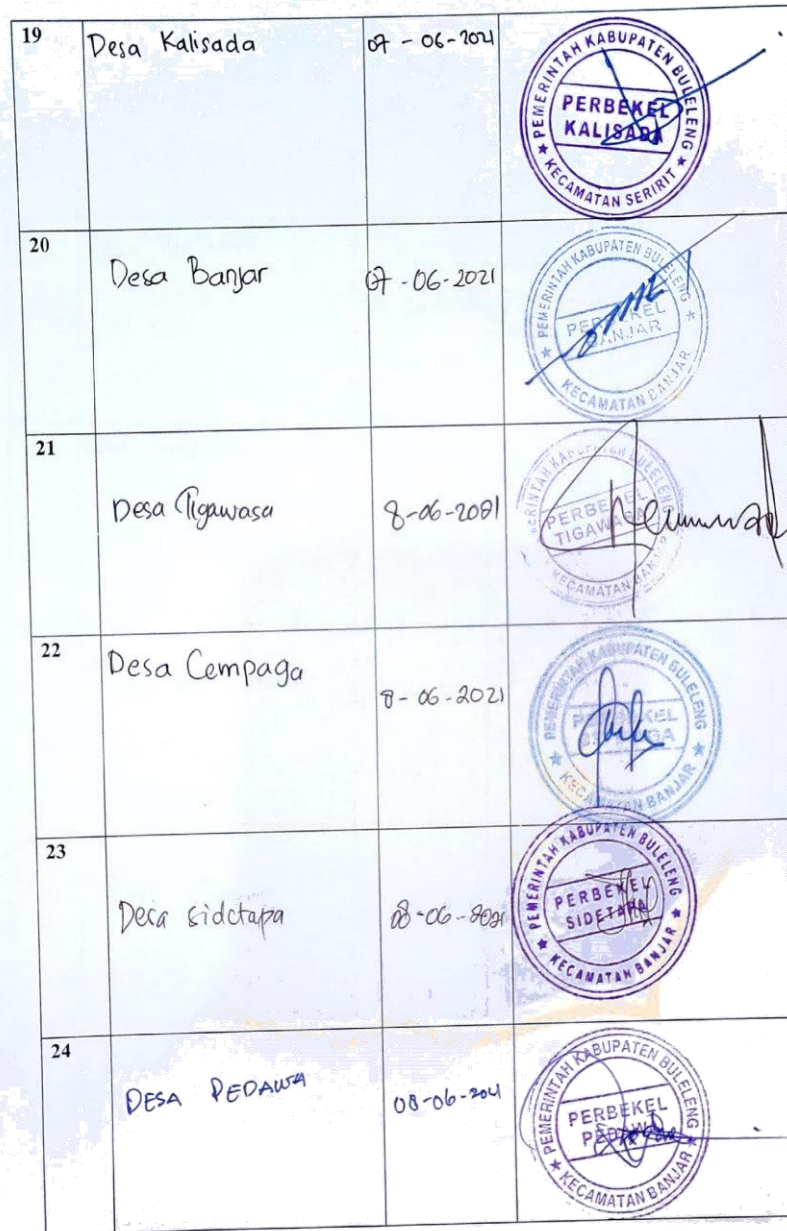 19 Desa Kalisada 07-06-2021
PEMERINTAH KABUPATEN BULELENG
PERBEKEL
KALISADA
KECAMATAN SERIRIT
20 Desa Banjar 07-06-2021
PEMERINTAH KABUPATEN BULELENG
PERBEKEL
BANJAR
KECAMATAN BANJAR
21 Desa Tigawasa 8-06-2021
PEMERINTAH KABUPATEN BULELENG
PERBEKEL
TIGAWASA
KECAMATAN BANJAR
22 Desa Cempaga 8-06-2021
PEMERINTAH KABUPATEN BULELENG
PERBEKEL
CEMPAGA
KECAMATAN BANJAR
23 Desa Sidetapa 08-06-2021
PEMERINTAH KABUPATEN BULELENG
PERBEKEL
SIDETAPA
KECAMATAN BANJAR
24 DESA PEDAWA 08-06-2021
PEMERINTAH KABUPATEN BULELENG
PERBEKEL
PEDAWA
KECAMATAN BANJAR